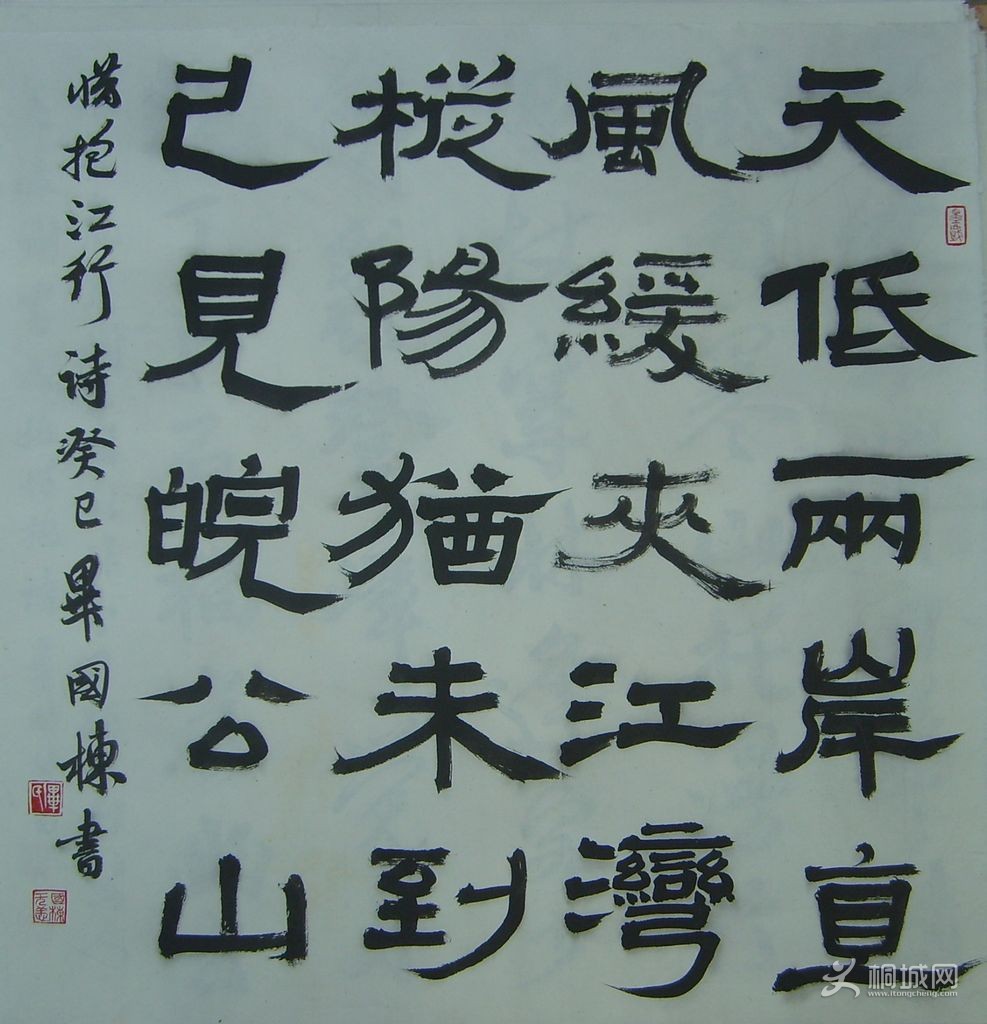 天低兩岸直
風緩夾江灣
樅陽猶未到
已見皖公山
惜抱江行诗癸巳畢國棟書
畢氏
桐城网
www.itongcheng.com